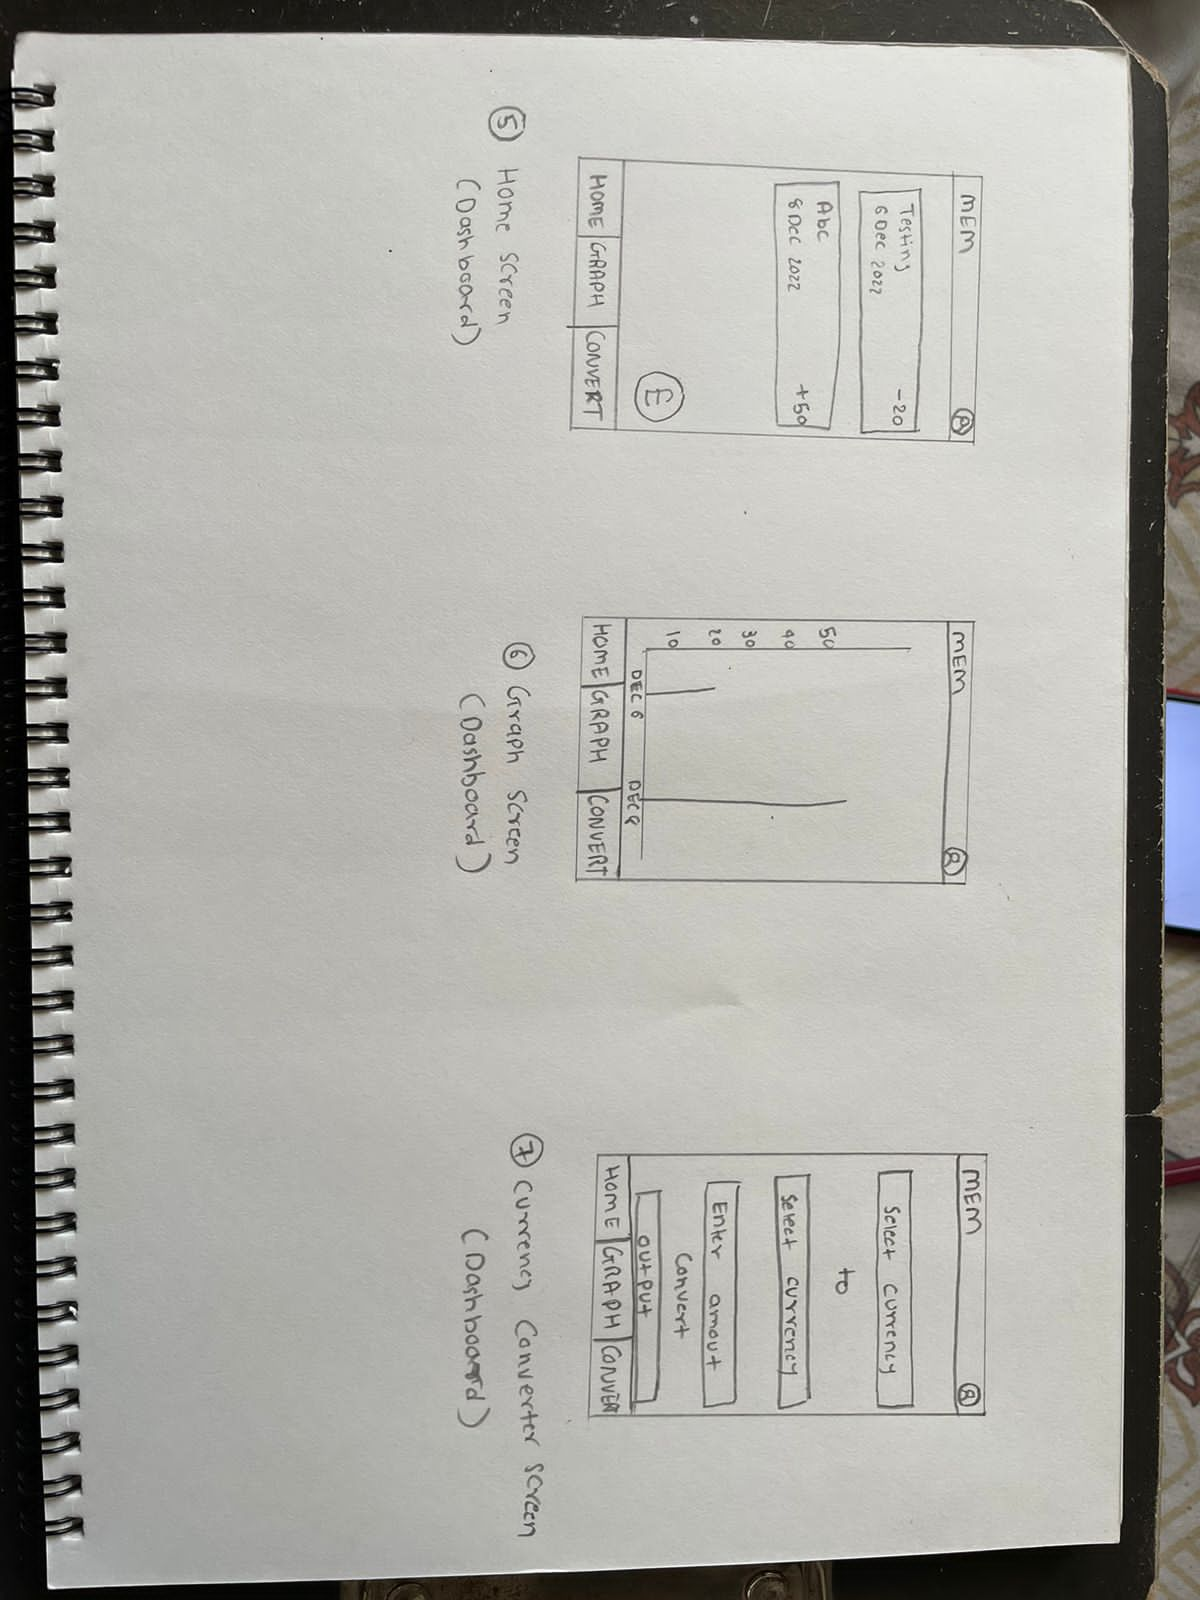 MEM
Testing
6 Dec 2022
-20
Abc
8 Dec 2022
+50
E
HOME GRAPH CONVERT
5 Home Screen
(Dashboard)
MEM
50
40
30
20
10
DEC 6 DEC 8
HOME GRAPH CONVERT
6 Graph Screen
(Dashboard)
MEM
Select currency
to
Select currency
Enter amout
Convert
output
HOME GRAPH CONVERT
7 Currency Converter Screen
(Dashboard)